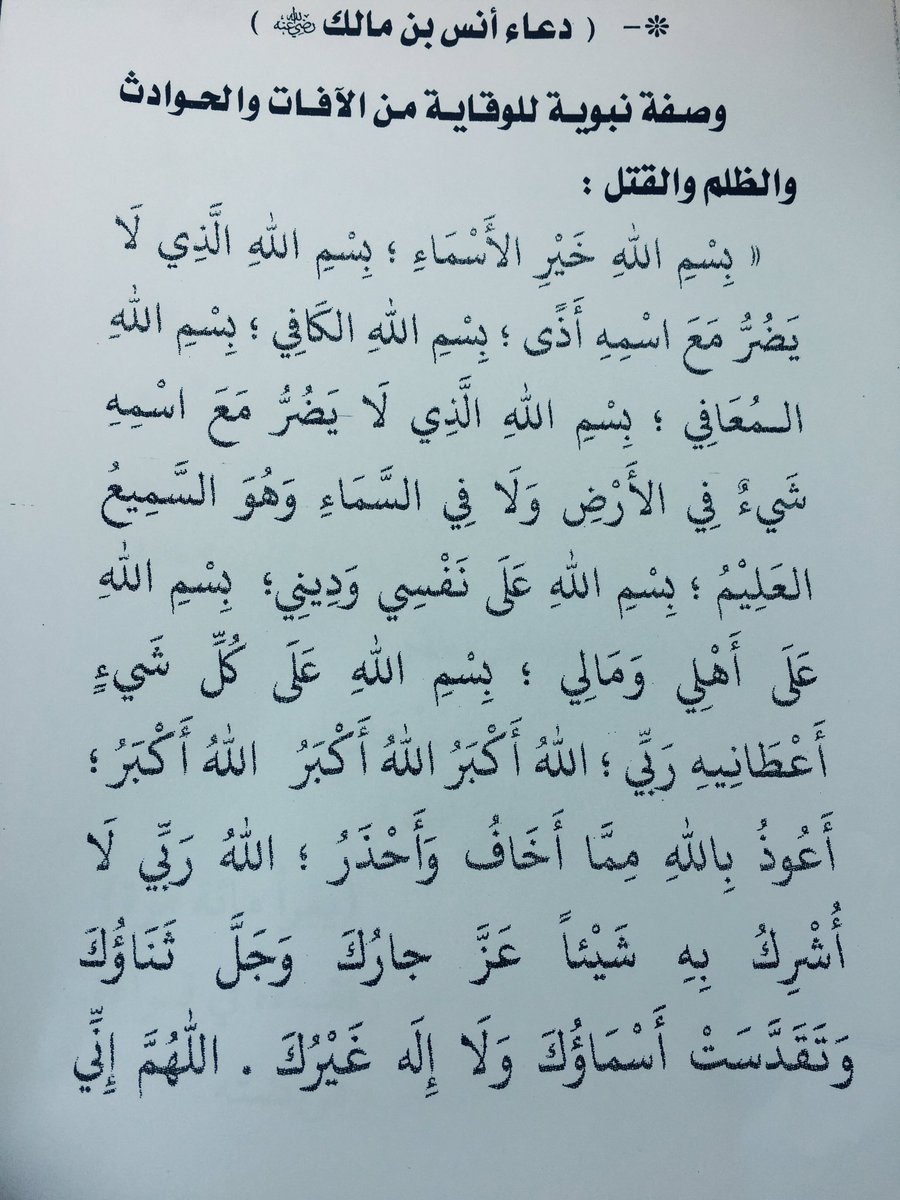 ❊– ( دعاء أنس بن مالك رضي الله عنه )
وصفة نبوية للوقاية من الآفات والحوادث
والظلم والقتل :
« بِسْمِ اللهِ خَيْرِ الأَسْمَاءِ ؛ بِسْمِ اللهِ الَّذِي لَا
يَضُرُّ مَعَ اسْمِهِ أَذًى ؛ بِسْمِ اللهِ الكَافِي ؛ بِسْمِ اللهِ
الـمُعَافِي ؛ بِسْمِ اللهِ الَّذِي لَا يَضُرُّ مَعَ اسْمِهِ
شَيءٌ فِي الأَرْضِ وَلَا فِي السَّمَاءِ وَهُوَ السَّمِيعُ
العَلِيْمُ ؛ بِسْمِ اللهِ عَلَى نَفْسِي وَدِينِي؛ بِسْمِ اللهِ
عَلَى أَهْلِي وَمَالِي ؛ بِسْمِ اللهِ عَلَى كُلِّ شَيءٍ
أَعْطَانِيهِ رَبِّي ؛ اللهُ أَكْبَرُ اللهُ أَكْبَرُ اللهُ أَكْبَرُ ؛
أَعُوذُ بِاللهِ مِمَّا أَخَافُ وَأَحْذَرُ ؛ اللهُ رَبِّي لَا
أُشْرِكُ بِهِ شَيْئاً عَزَّ جارُكَ وَجَلَّ ثَنَاؤُكَ
وَتَقَدَّسَتْ أَسْمَاؤُكَ وَلَا إِلَه غَيْرُكَ . اللَّهُمَّ إِنِّي